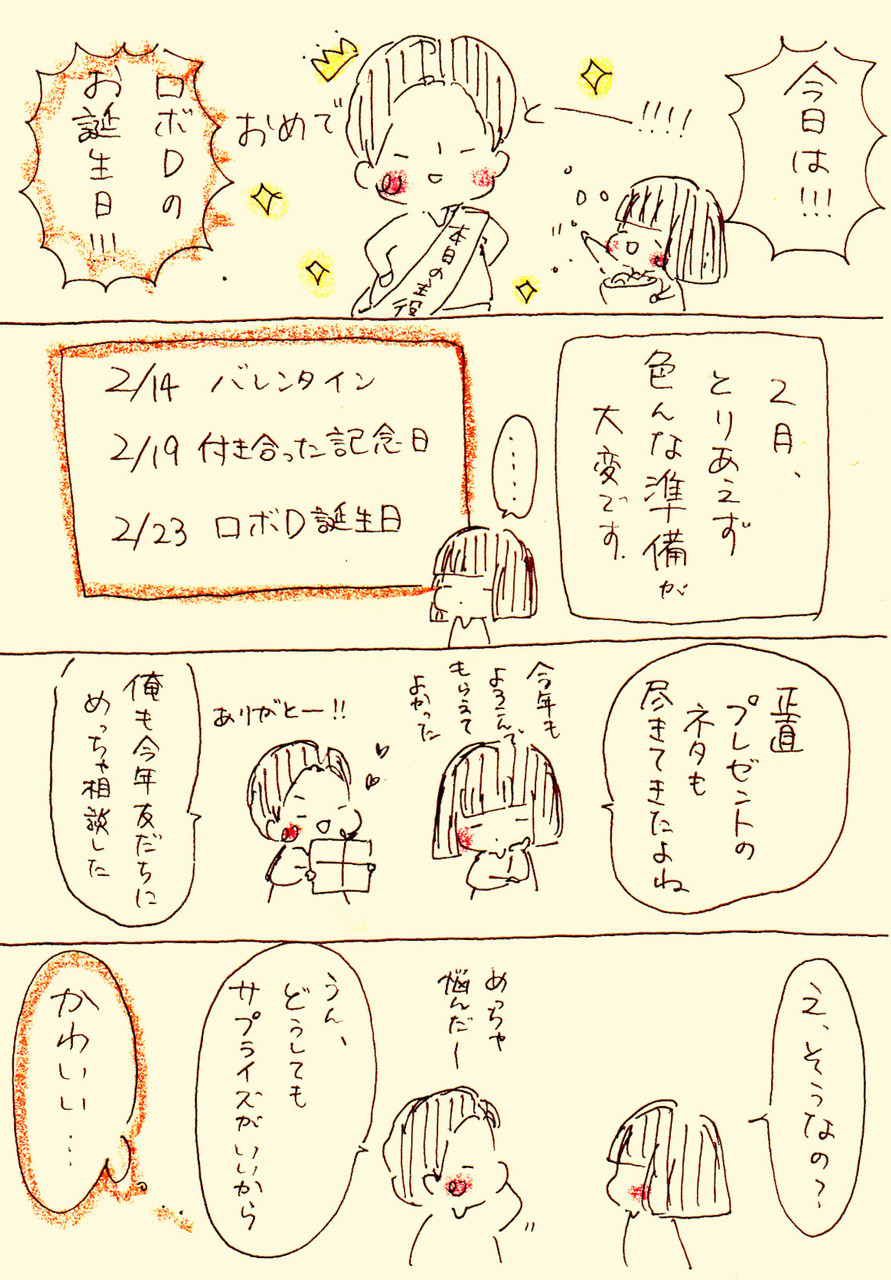 今日は!!!
おめでとー!!!!
本日の主役
ロボDの
お誕生日!!!
2月、
とりあえず
色んな準備が
大変です.
.....
2/14 バレンタイン
2/19 付き合った記念日
2/23 ロボD誕生日
正直
プレゼントの
ネタも
尽きてきたよね
今年も
よろこんで
もらえて
よかった
ありがとー!!
俺も今年友だちに
めっちゃ相談した
え、そうなの?
めっちゃ
悩んだー
うん、
どうしても
サプライズがいいから
かわいい…